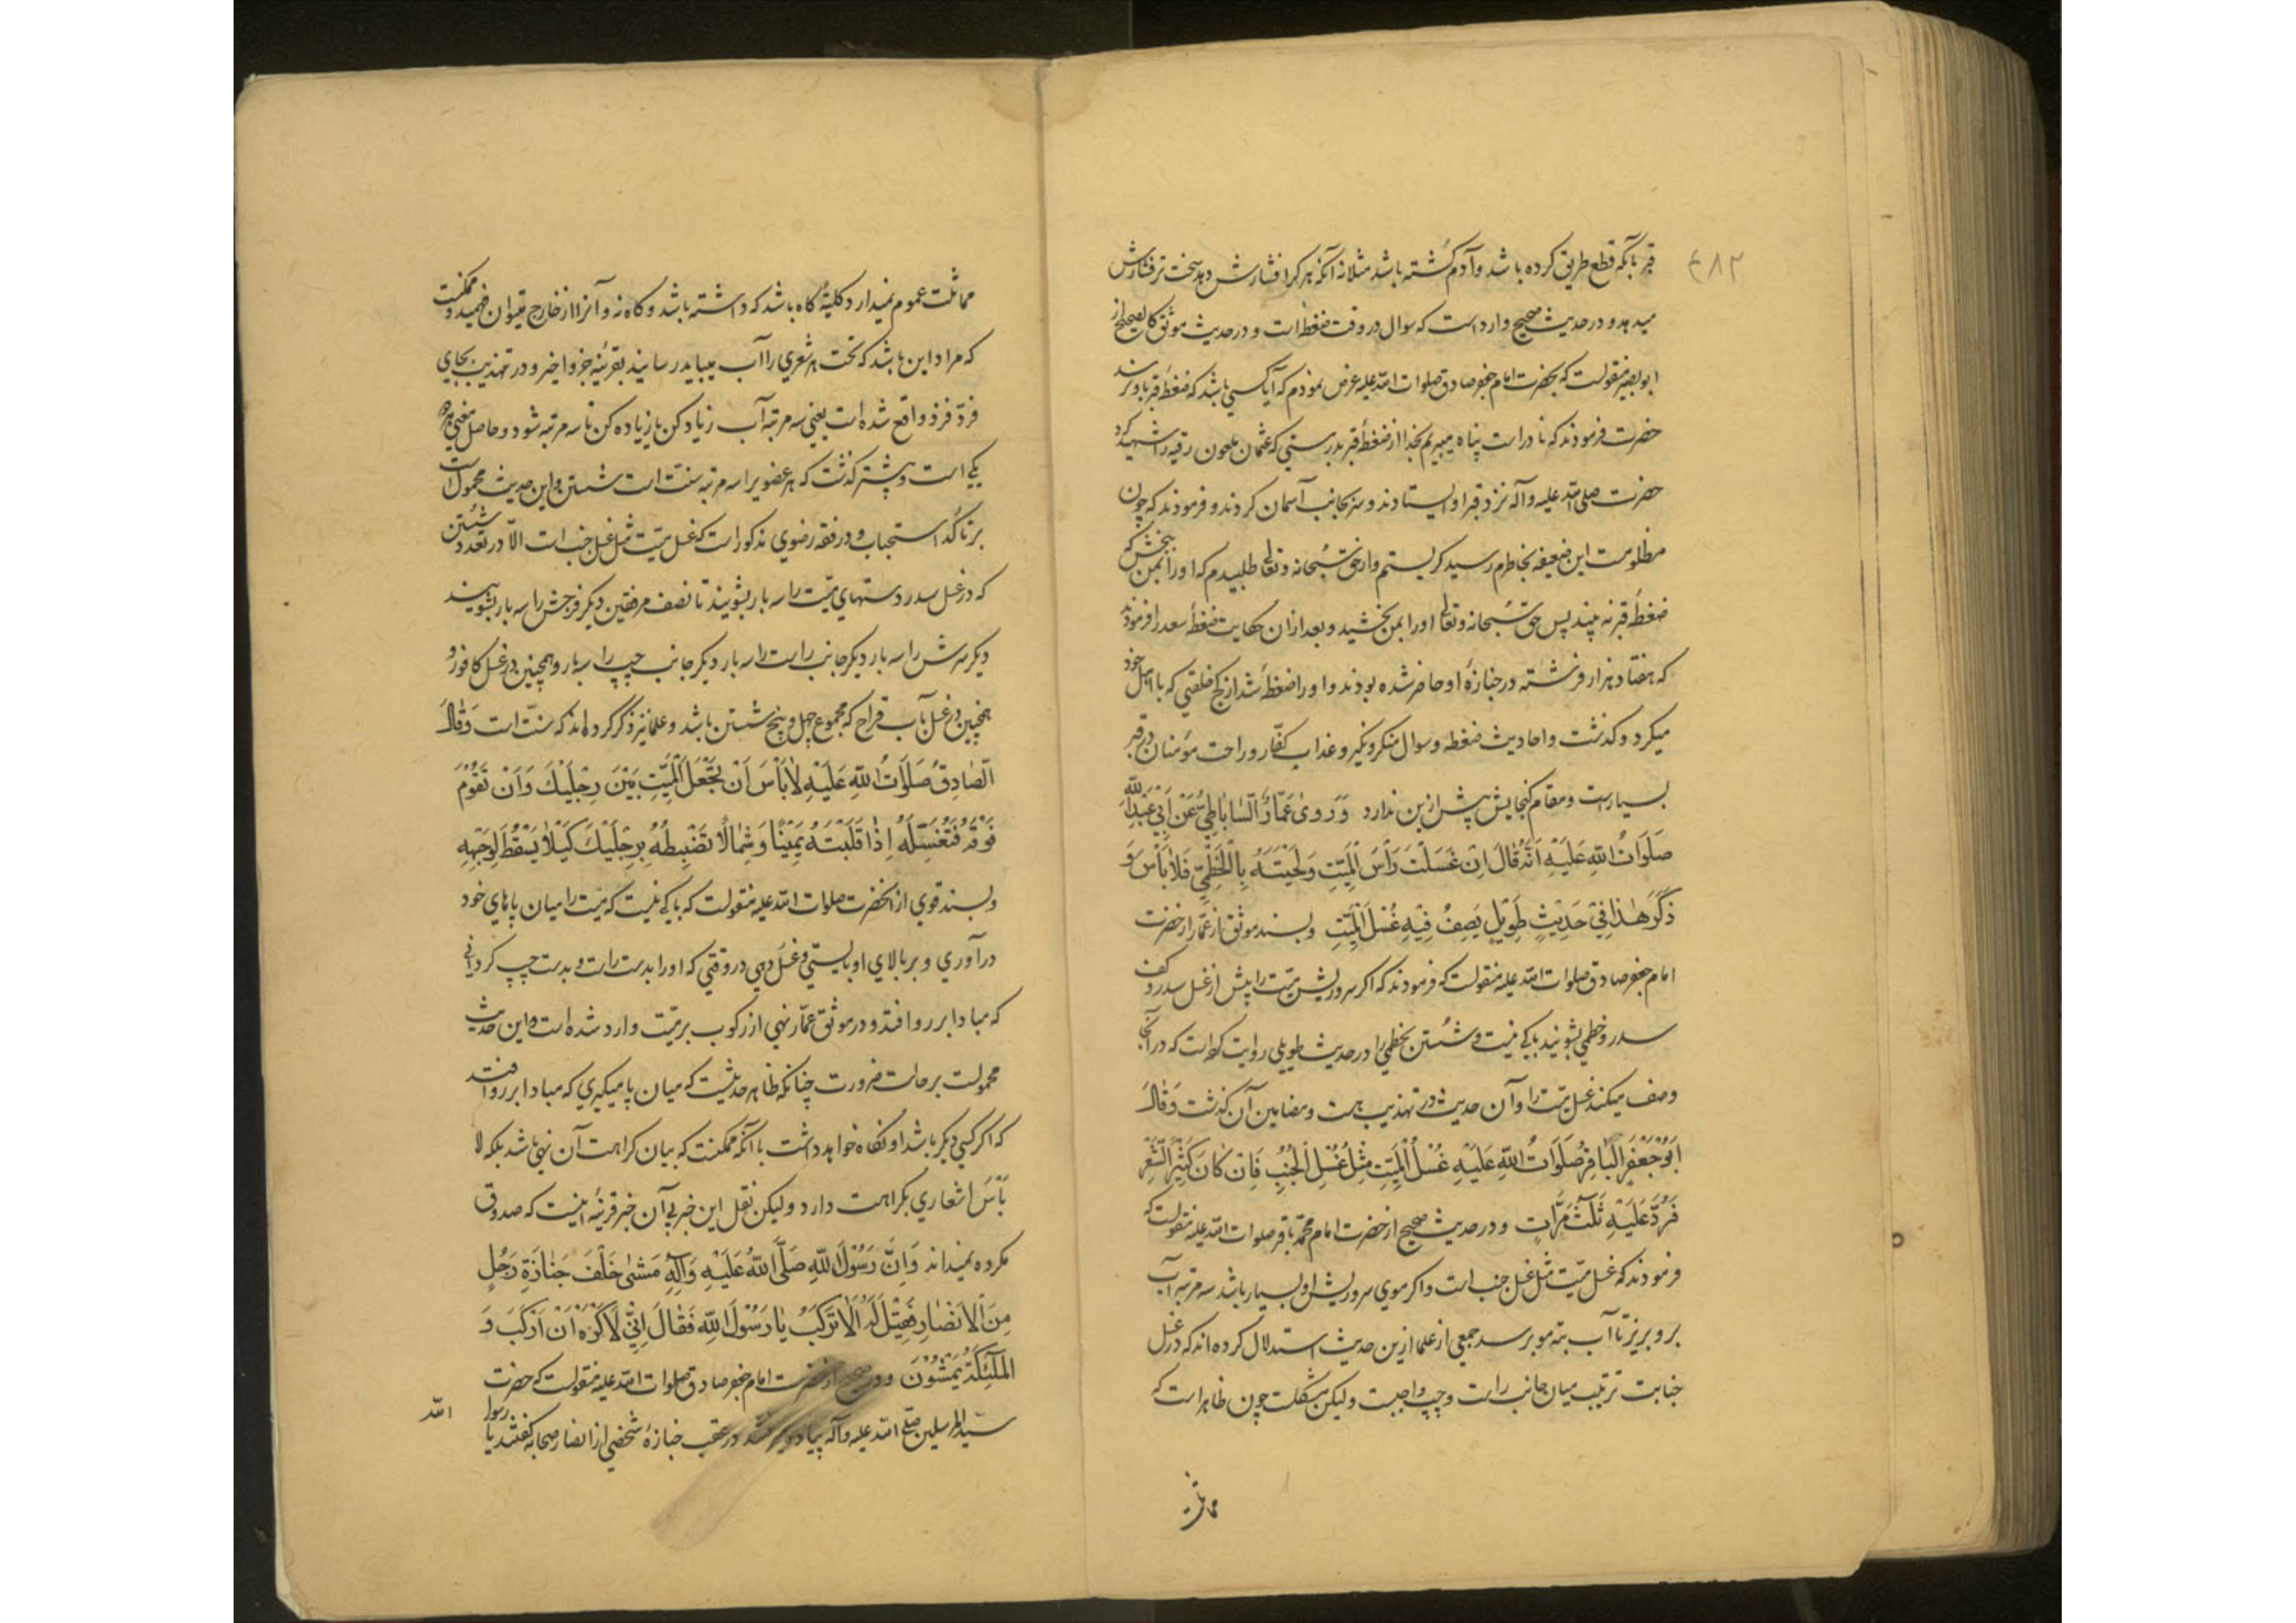 ۴۸۲
قبر بآنکه قطع طریق کرده باشد و آدم کُشته باشد مثلا نه آنکه هر کرا فشارش دهد سخت تر فشارش
میدهد و در حدیث صحیح وارد است که سوال در وقت ضغطه است و در حدیث موثق کالصحیح از
ابوبصیر منقولست که بحضرت امام جعفر صادق صلوات الله علیه عرض نمودم که آیا کسی باشد که ضغطهٔ قبر باو نرسد
حضرت فرمودند که نادر است پناه میبریم بخدا از ضغطهٔ قبر بدرستی که عثمان ملعون رقیه را شهید کرد
حضرت صلی الله علیه وآله نزد قبر او ایستادند و سر بجانب آسمان کردند و فرمودند که چون
مظلومیت این ضعیفه بخاطرم رسید گریستم و از حق سُبحانه و تعالی طلبیدم که او را بمن ببخش که
ضغطهٔ قبر نه بیند پس حق سُبحانه و تعالی او را بمن بخشید و بعد از ان حکایت ضغطهٔ سعد را فرمودند
که هفتاد هزار فرشته در جنازهٔ او حاضر شده بودند و او را ضغطهٔ شد از کج خلقی که با اهل خود
میکرد و گذشت و احادیث ضغطه و سوال منکر و نکیر و عذاب کفّار و راحت مؤمنان در قبر
بسیار است و مقام گنجایش بیش ازین ندارد وَرَوىٰ عَمَّارٌ السّاباطِیُّ عَنْ اَبِیْ عَبْدِ اللّٰهِ
صَلَوَاتُ اللّٰهِ عَلَیْهِ اَنَّهُ قَالَ اِنْ غَسَلْتَ رَأْسَ الْمَیِّتِ وَلِحْیَتَهُ بِالْخَطْمِیِّ فَلَا بَأْسَ وَ
ذَکَرَ هٰذَا فِیْ حَدِیْثٍ طَوِیْلٍ یَصِفُ فِیْهِ غُسْلَ الْمَیِّتِ و بسند موثق از عمّار از حضرت
امام جعفر صادق صلوات الله علیه منقولست که فرمودند که اگر سر و ریش میّت را پیش از غسل سدر و کف
سدر و خطمی بشویند باکی نیست و شُستن بخطمی را در حدیث طویلی روایت کرده است که در آنجا
وصف میکند غسل میّت را و آن حدیث در تهذیب هست و مضامین آن گذشت وَقَالَ
اَبُوْ جَعْفَرٍ الْبَاقِرُ صَلَوَاتُ اللّٰهِ عَلَیْهِ غُسْلُ الْمَیِّتِ مِثْلُ غُسْلِ الْجُنُبِ فَاِنْ کَانَ کَثِیْرَ الشَّعْرِ
فَرُدَّ عَلَیْهِ ثَلٰثَ مَرَّاتٍ و در حدیث صحیح از حضرت امام محمّد باقر صلوات الله علیه منقولست که
فرمودند که غسل میّت مثل غسل جنب است و اگر موی سر و ریش او بسیار باشد سه مرتبه آب
برو بریز تا آب بته مو برسد جمعی از علما ازین حدیث استدلال کرده اند که در غسل
جنابت ترتیب میان جانب راست و چپ واجبست ولیکن مشکلست چون ظاهر است که
مماثلت
مماثلت عموم نمیدارد کلیهٔ گاه باشد که داشته باشد و گاه نه و آنرا از خارج میتوان فهمید و ممکنست
که مراد این باشد که تحت هر شعری را آب میباید رسانید بقرینهٔ جزو اخیر و در تهذیب بجای
فردّ فزد واقع شده است یعنی سه مرتبه آب زیاد کن یا زیاده کن تا سه مرتبه شود و حاصل معنی هر دو
یکی است و پیشتر گذشت که هر عضویرا سه مرتبه سنّت است شستن و این حدیث محمول است
بر تأکّد استحباب و در فقه رضوی مذکور است که غسل میّت مثل غسل جنب است الّا در تعدد شُستن
که در غسل سدر دستهای میّت را سه بار بشویند تا نصف مرفقین دیگر فرجش را سه بار بشویند
دیگر سرش را سه بار دیگر جانب راست را سه بار دیگر جانب چپ را سه بار و همچنین در غسل کافور و
همچنین در غسل بآب قراح که مجموع چهل و پنج شستن باشد و علما نیز ذکر کرده اند که سنّت است وَقَالَ
الصَّادِقُ صَلَوَاتُ اللّٰهِ عَلَیْهِ لَابَأْسَ اَنْ تَجْعَلَ الْمَیِّتَ بَیْنَ رِجْلَیْكَ وَاَنْ تَقُوْمَ
فَوْقَهُ فَتُغَسِّلَهُ اِذَا قَلَبْتَهُ یَمِیْنًا وَشِمَالًا تَضْبِطُهُ بِرِجْلَیْكَ کَیْلَا یَسْقُطَ لِوَجْهِهِ
و بسند قوی از انحضرت صلوات الله علیه منقولست که باکی نیست که میّت را میان پاهای خود
درآوری و بر بالای او بایستی و غسل دهی در وقتی که او را بدست راست و بدست چپ گردانی
که مبادا بر رو افتد و در موثق عمّار نهی از رکوب بر میّت وارد شده است و این حدیث
محمولست بر حالت ضرورت چنانکه ظاهر حدیثست که میان پا میگیری که مبادا بر رو افتد
که اگر کسی دیگر باشد او نگاه خواهد داشت با آنکه ممکنست که بیان کراهت آن نهی باشد بلکه لا
بَأْسَ اشعاری بکراهت دارد ولیکن نقل این خبر بی آن خبر قرینهٔ اینست که صدوق
مکروه نمیداند وَاِنَّ رَسُوْلَ اللّٰهِ صَلَّی اللّٰهُ عَلَیْهِ وَآلِهِ مَشٰی خَلْفَ جَنَازَةِ رَجُلٍ
مِنَ الْاَنْصَارِ فَقِیْلَ لَهُ اَلَا تَرْکَبُ یَا رَسُوْلَ اللّٰهِ فَقَالَ اِنِّیْ لَاَکْرَهُ اَنْ اَرْکَبَ وَ
الْمَلٰئِکَةُ یَمْشُوْنَ و در صحیح از حضرت امام جعفر صادق صلوات الله علیه منقولست که حضرت
سیّد المرسلین صلی الله علیه وآله پیاده میرفتند در عقب جنازهٔ شخصی از انصار صحابه گفتند یا رسول
الله